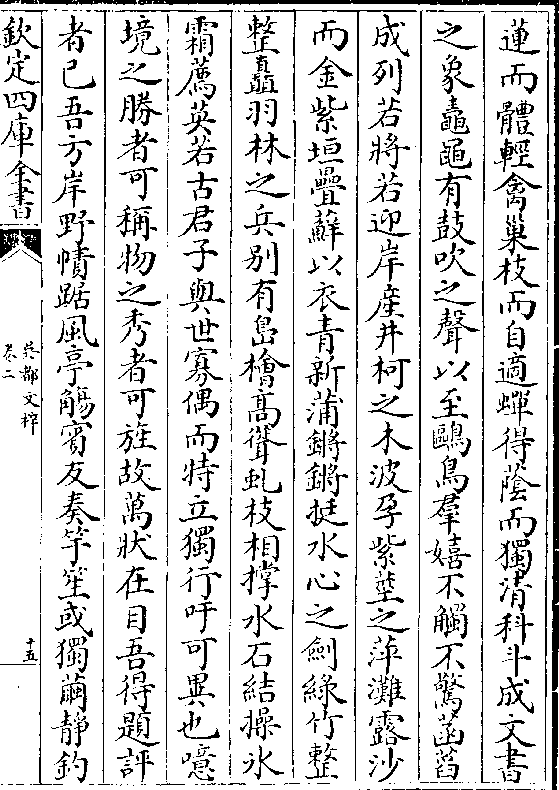 蓮而體輕禽巢枝而自適蟬得蔭而獨清科斗成文書
之象鼃黽有鼓吹之聲以至鷗鳥羣嬉不觸不驚菡萏
成列若將若迎岸産井柯之木波孕紫莖之萍灘露沙
而金紫垣疊蘚以衣青新蒲鏘鏘挺水心之劍綠竹整
整矗羽林之兵别有島檜髙聳虬枝相撑水石結操氷
霜薦英若古君子與世寡偶而特立獨行吁可異也噫
境之勝者可稱物之秀者可旌故萬狀在目吾得題評
者已吾方岸野幘踞風亭觴賓友奏竽笙或獨繭靜釣
欽定四庫全書
吳都文粹
卷二
十五